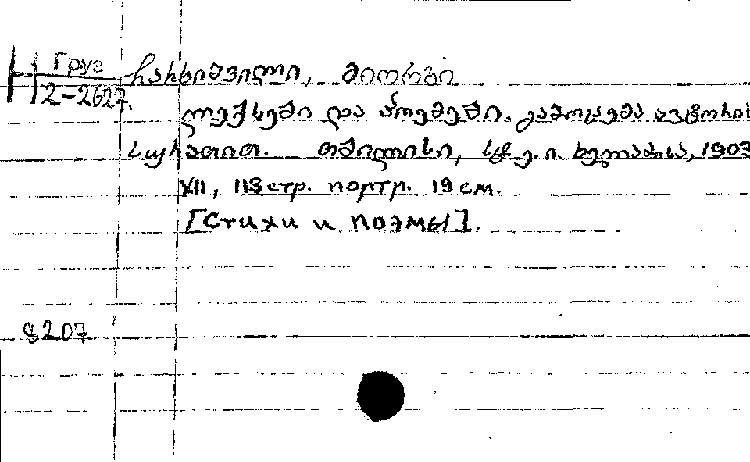 Н Груз
2-2627.
ჩარხიშვილი, გიორგი
ლექსები და პოემები. გამოცემა ავტორის
სურათით. თბილისი, სტ. ე. ი. ხელაძისა, 1903
XII, 113 стр. портр. 19 см.
[Стихи и поэмы].
8207